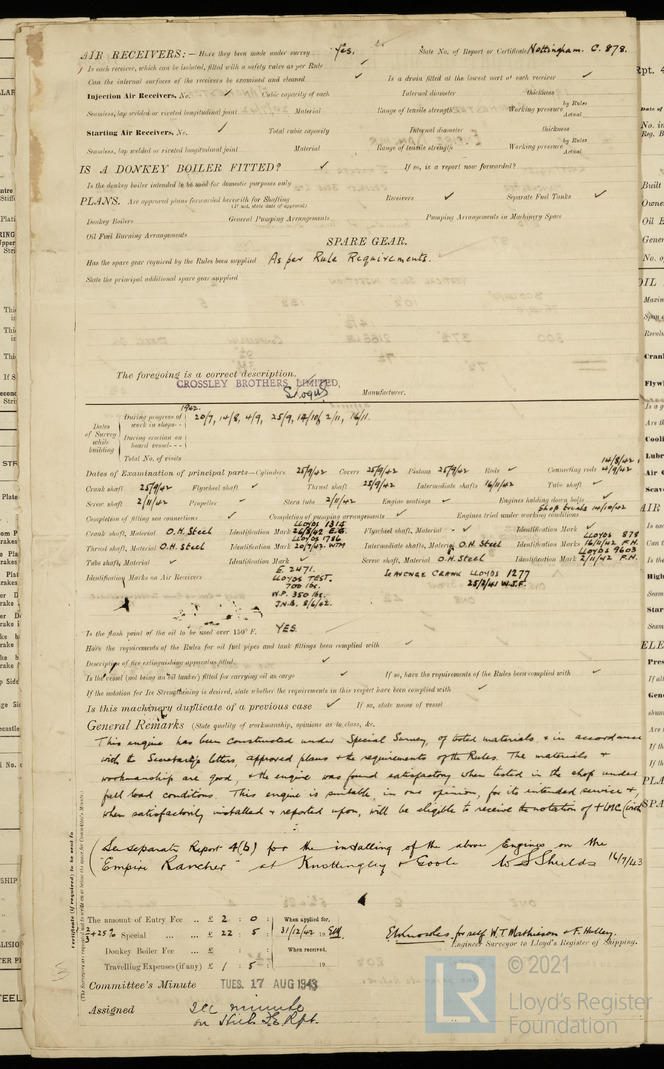 AIR RECEIVERS:— Have they been made under survey Yes. State No. of Report or Certificate Nottingham. C. 878.
Is each receiver, which can be isolated, fitted with a safety valve as per Rule ✓
Can the internal surfaces of the receivers be examined and cleaned ✓ Is a drain fitted at the lowest part of each receiver ✓
Injection Air Receivers, No. Cubic capacity of each Internal diameter thickness
Seamless, lap welded or riveted longitudinal joint Material Range of tensile strength Working pressure by Rules Actual
Starting Air Receivers, No. ✓ Total cubic capacity Internal diameter thickness
Seamless, lap welded or riveted longitudinal joint Material Range of tensile strength Working pressure by Rules Actual
IS A DONKEY BOILER FITTED? ✓ If so, is a report now forwarded?
Is the donkey boiler intended to be used for domestic purposes only
PLANS. Are approved plans forwarded herewith for Shafting Receivers ✓ Separate Fuel Tanks ✓
(If not, state date of approval)
Donkey Boilers General Pumping Arrangements Pumping Arrangements in Machinery Space
Oil Fuel Burning Arrangements
SPARE GEAR.
Has the spare gear required by the Rules been supplied As per Rule Requirements.
State the principal additional spare gear supplied
The foregoing is a correct description,
CROSSLEY BROTHERS, LIMITED,
Manufacturer.
1942.
Dates of Survey while building
During progress of work in shops - - 20/7, 14/8, 4/9, 25/9, 14/10, 2/11, 16/11.
During erection on board vessel - - -
Total No. of visits
14/8/42
Dates of Examination of principal parts—Cylinders 25/9/42 Covers 25/9/42 Pistons 25/9/42 Rods ✓ Connecting rods 4/9/42
Crank shaft 25/9/42 Flywheel shaft ✓ Thrust shaft 25/9/42 Intermediate shafts 16/11/42 Tube shaft ✓
Screw shaft 2/11/42 Propeller ✓ Stern tube 2/11/42 Engine seatings ✓ Engines holding down bolts ✓
Completion of fitting sea connections ✓ Completion of pumping arrangements ✓ Engines tried under working conditions Shop trials 14/10/42
Crank shaft, Material O.H. Steel Identification Mark LLOYDS 1315 26/8/42 E.G. Flywheel shaft, Material - ✓ Identification Mark ✓
Thrust shaft, Material O.H. Steel Identification Mark LLOYDS 1786 20/7/42. WTM Intermediate shafts, Material O.H. Steel Identification Marks LLOYDS 878 16/11/42 F.H.
Tube shaft, Material ✓ Identification Mark ✓ Screw shaft, Material O.H. Steel Identification Mark LLOYDS 9603 2/11/42 F.H.
Identification Marks on Air Receivers E. 2471. LLOYDS TEST. 700 lbs. W.P. 350 lbs. J.N.B. 8/6/42.
SCAVENGE CRANK LLOYDS 1277
25/2/41 W.J.F.
Is the flash point of the oil to be used over 150° F. YES
Have the requirements of the Rules for oil fuel pipes and tank fittings been complied with ✓
Description of fire extinguishing apparatus fitted ✓
Is the vessel (not being an oil tanker) fitted for carrying oil as cargo ✓ If so, have the requirements of the Rules been complied with ✓
If the notation for Ice Strengthening is desired, state whether the requirements in this respect have been complied with ✓
Is this machinery duplicate of a previous case ✓ If so, state name of vessel
General Remarks (State quality of workmanship, opinions as to class, &c.
This engine has been constructed under Special Survey, of tested materials & in accordance
with the Secretary's letters, approved plans & the requirements of the Rules. The materials &
workmanship are good, & the engine was found satisfactory when tested in the shop under
full load conditions. This engine is suitable, in our opinion, for its intended service &
when satisfactorily installed & reported upon, will be eligible to receive the notation of +LMC (with
(See separate Report 4(b) for the installing of the above Engines on the
"Empire Rancher" at Knottingley & Goole 16/7/43
The amount of Entry Fee .. £ 2 : 0 : When applied for,
+25% Special £ 22 : 5 31/12/42
Donkey Boiler Fee .. £ : : When received,
Travelling Expenses (if any) £ 1 : 5 : 19
for self W.T. Mathieson & F. Holley.
Engineer Surveyor to Lloyd's Register of Shipping.
Committee's Minute TUES. 17 AUG 1943
Assigned See minute
on
© 2021
LR Lloyd's Register
Foundation